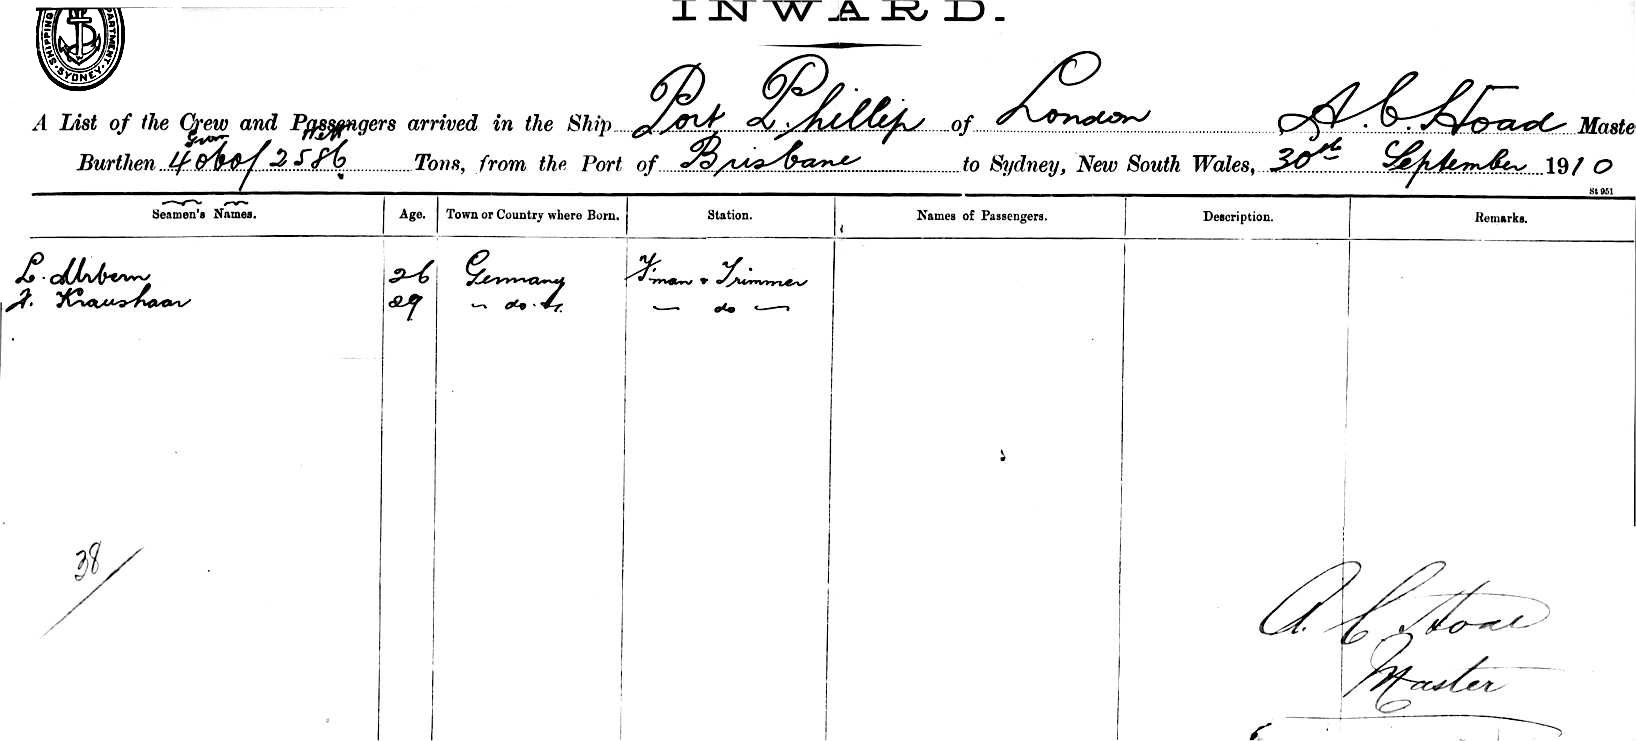 INWARD.
SHIPPING
SYDNEY
A List of the Crew and Passengers arrived in the Ship Port Phillip of London A. C. Hoad Maste
Gross Nett
Burthen 4060/2586 Tons, from the Port of Brisbane to Sydney, New South Wales, 30th September 1910
St 951
Seamen's Names. Age. Town or Country where Born. Station. Names of Passengers. Description. Remarks.
L. 26 Germany F'man & Trimmer
F. Kraushaar 29 " do. " — do —
38/
A. C. Hoad
Master